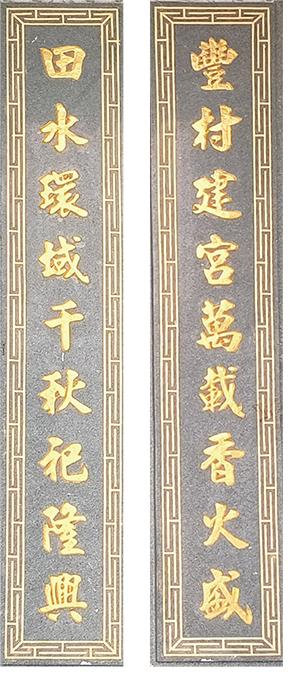 豐村建宮萬載香火盛
田水環域千秋祀隆興